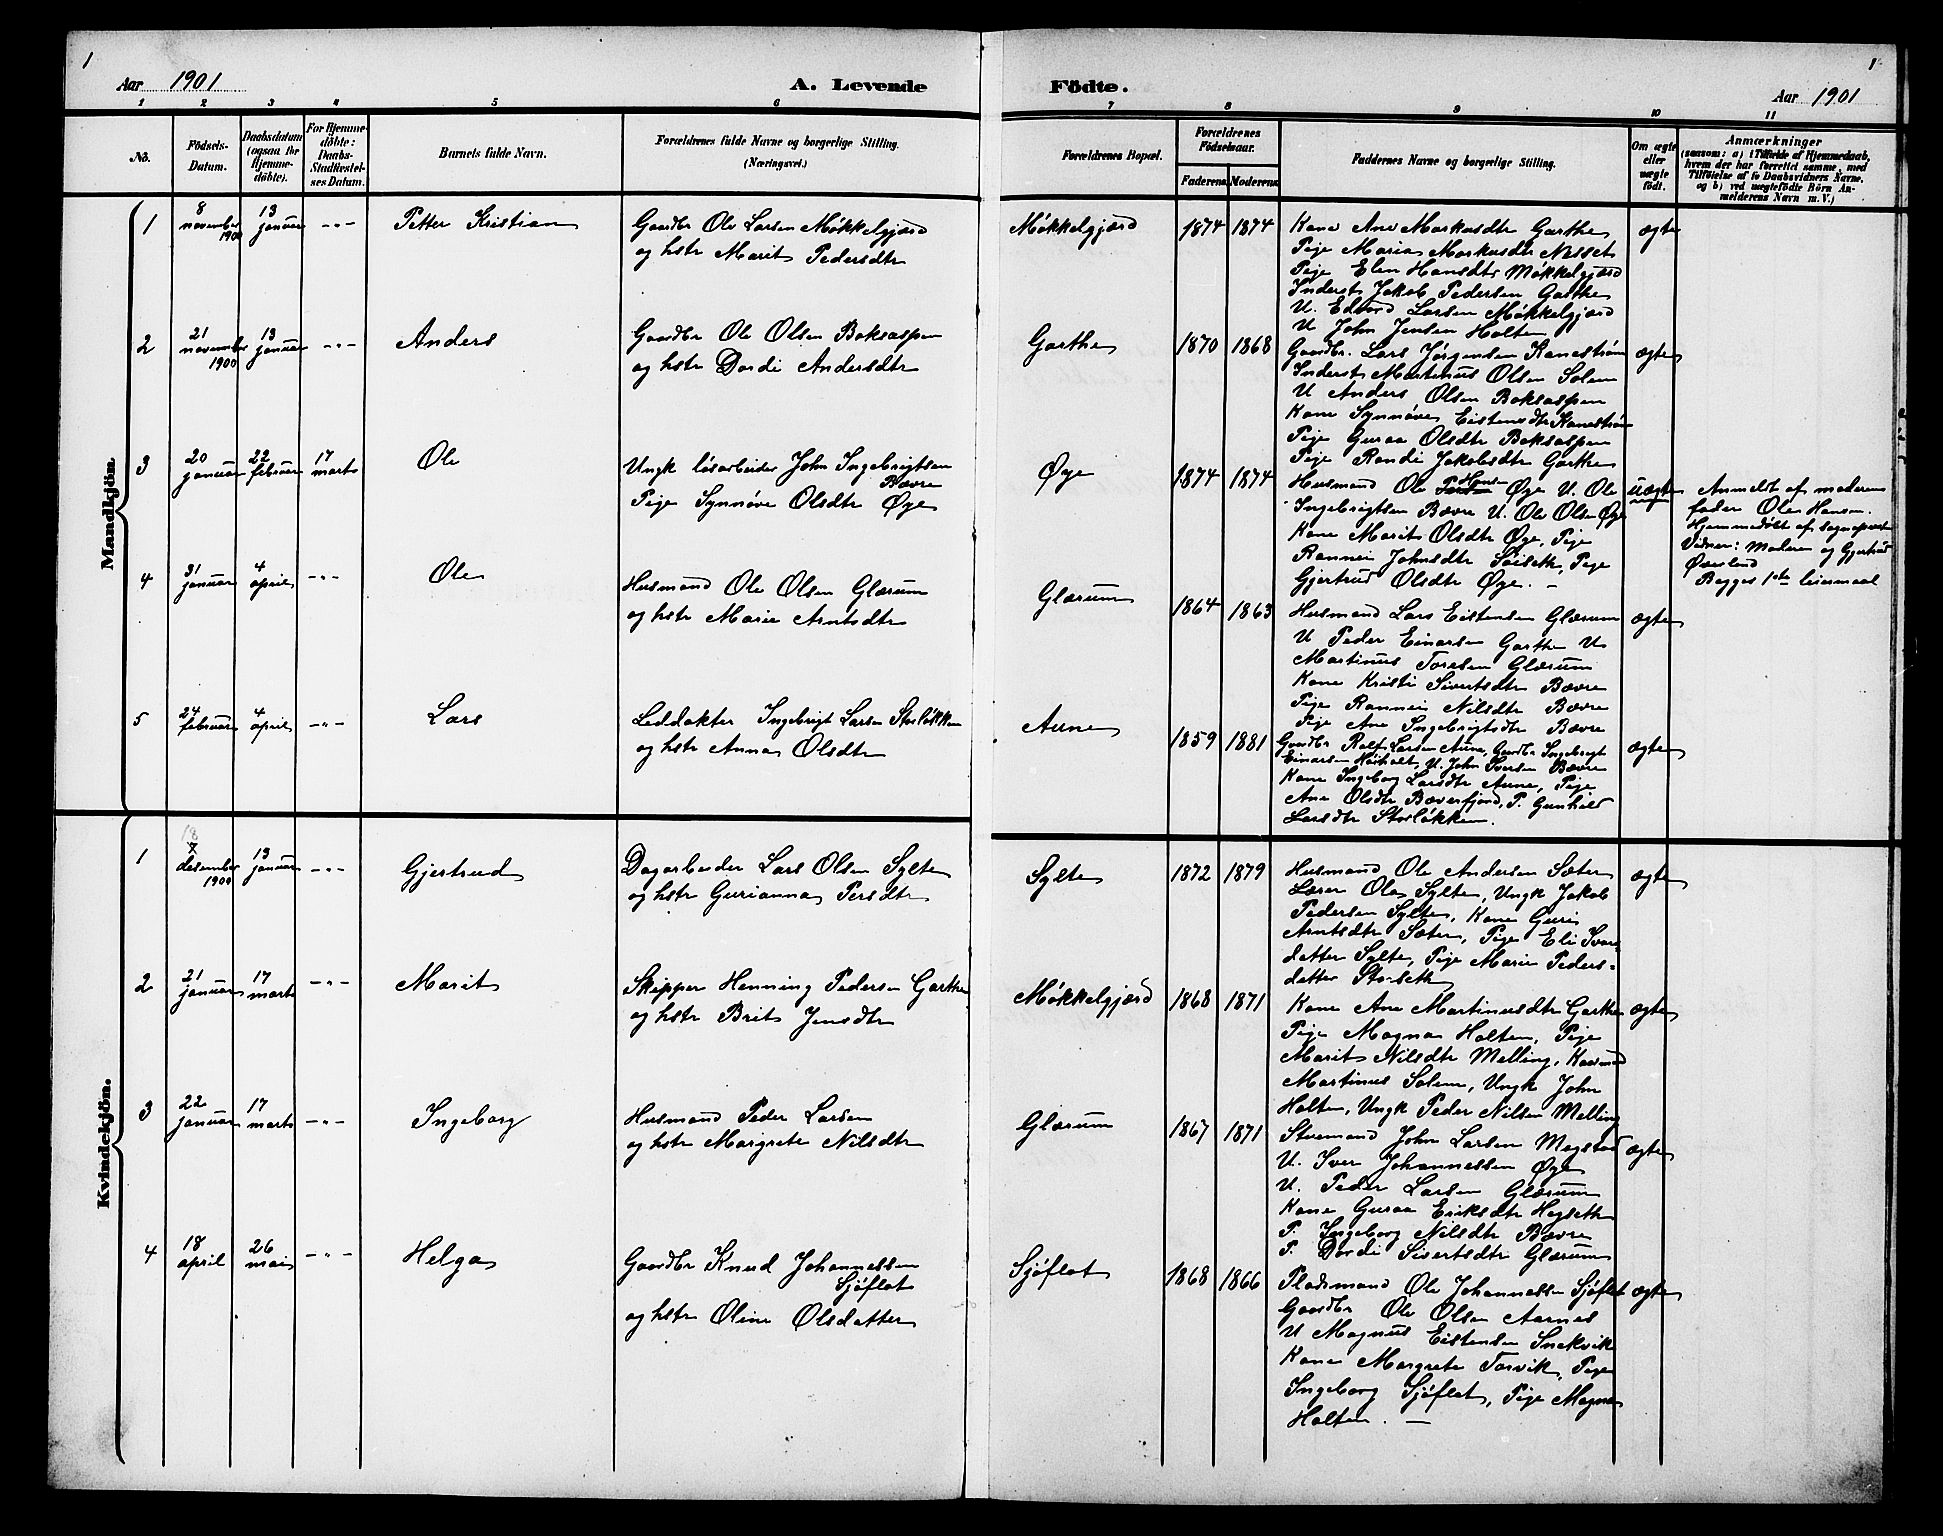 1
Aar 1901
A. Levende
1 2 3 4 5 6
No.
Födsels-
Datum.
Daabsdatum
(ogsaa for
Hjemme-
döbte).
For Hjemme-
döbte:
Daabs-
Stadfæstel-
ses Datum.
Barnets fulde Navn.
Forældrenes fulde Navne og borgerlige Stilling.
(Næringsvei.)
Mandkjön.
1 8 november 1900 13 januar -"- Petter Kristian
Gaardbr Ole Larsen Møkkelgjærd
og hstr Marit Pedersdtr
2 21 november 1900 13 januar -"- Anders
Gaardbr Ole Olsen Boksaspen
og hstr Dordi Andersdtr
3 20 januar 22 februar 17 marts Ole
Ungk løsarbeider John Ingebrigtsen
Bævre
Pige Synnøve Olsdtr Øye
4 31 januar 4 april -"- Ole
Husmand Ole Olsen Glærum
og hstr Marie Arntsdtr
5 24 februar 4 april -"- Lars
Leddokter Ingebrigt Larsen Storløkken
og hstr Anna Olsdtr
Kvindekjön.
1 18 desember 1900 13 januar -"- Gjertrud
Dagarbeider Lars Olsen Sylte
og hstr Gurianna Persdtr
2 21 januar 17 marts -"- Marit
Skipper Henning Pedersen Garthe
og hstr Brit Jensdtr
3 22 januar 17 marts -"- Ingeborg
Husmand Peder Larsen
og hstr Margrete Nilsdtr
4 18 april 26 mai -"- Helga
Gaardbr Knud Johannessen
Sjøflot
og hstr Oline Olsdatter
Födte.
1
Aar 1901
7 8 9 10 11
Forældrenes Bopæl.
Forældrenes
Födselsaar.
Faderens. Moderens.
Faddernes Navne og borgerlige Stilling.
Om ægte
eller
uægte
födt.
Anmærkninger
(saasom: a) i Tilfælde af Hjemmedaab,
hvem der har forrettet samme, med
Tilföielse af to Daabsvidners Navne,
og b) ved uægtefödte Börn An-
melderens Navn m. V.)
Møkkelgjærd 1874 1874 Kone Ane Markusdtr Garthe ægte
Pige Maria Markusdtr Nesset
Pige Elen Hansdtr Møkkelgjærd
Inderst Jakob Pedersen Garthe
U. Edvard Larsen Møkkelgjærd
U John Jensen Holten
Garthe 1870 1868 Gaardbr. Lars Jørgensen Kanestrøm ægte
Inderst Martinus Olsen Solem
U Anders Olsen Boksaspen
Kone Synnøve Eistensdtr Kanestrøm
Pige Guraa Olsdtr Boksaspen
Pige Randi Jakobsdtr Garthe
Øye 1874 1874 Husmand Ole Hansen Øye U. Ole uægte
Ingebrigtsen Bævre U. Ole Olsen Øye
Kone Marit Olsdtr Øye, Pige
Rannei Johnsdtr Sæiseth, Pige
Gjertrud Olsdtr Øye. -
Anmeldt af moderens
fader Ole Hansen.
Hjemmedøbt af sognepresten
Vidner: Moderen og Gjertrud
Øverland
Begges 1ste leiermaal
Glærum 1864 1863 Husmand Lars Eistensen Glærum ægte
U Peder Einarsen Garthe U
Martinus Toresen Glærum
Kone Kristi Sivertsdtr Bævre
Pige Rannei Nilsdtr Bævre
Pige Ane Ingebrigtsdtr Bævre
Aune 1859 1881 Gaardbr Rolf Larsen Aune, Gaardbr Ingebrigt ægte
Einarsen Høiholt, U. John Iversen Bævre
Kone Ingeborg Larsdtr Aune, Pige
Ane Olsdtr Bæverfjord, P. Gunhild
Larsdtr Storløkken.
Sylte 1872 1879 Husmand Ole Andersen Sæter ægte
Lærer Ola Sylte, Ungk Jakob
Pedersen Sylte, Kone Guri
Arntsdtr Sæter, Pige Eli Ivars
datter Sylte, Pige Marie Peders-
datter Storseth
Møkkelgjærd 1868 1871 Kone Ane Martinusdtr Garthe ægte
Pige Magna Holten, Pige
Marit Nilsdtr Melling, Kaarmand
Martinus Solem, Ungk John
Holten, Ungk Peder Nilsen Melling
Glærum 1867 1871 Stuemand John Larsen Megstad ægte
U. Iver Johannessen Øye
U. Peder Larsen Glærum
Kone Guraa Eriksdtr Hegseth
P. Ingeborg Nilsdtr Bævre
P. Dordi Sivertsdtr Glærum
Sjøflot 1868 1866 Pladsmand Ole Johannessen Sjøflot ægte
Gaardbr Ole Olsen Aarnes
U Magnus Eistensen Snekvik
Kone Margrete Torvik, Pige
Ingeborg Sjøflot, Pige Magna
Holten. -